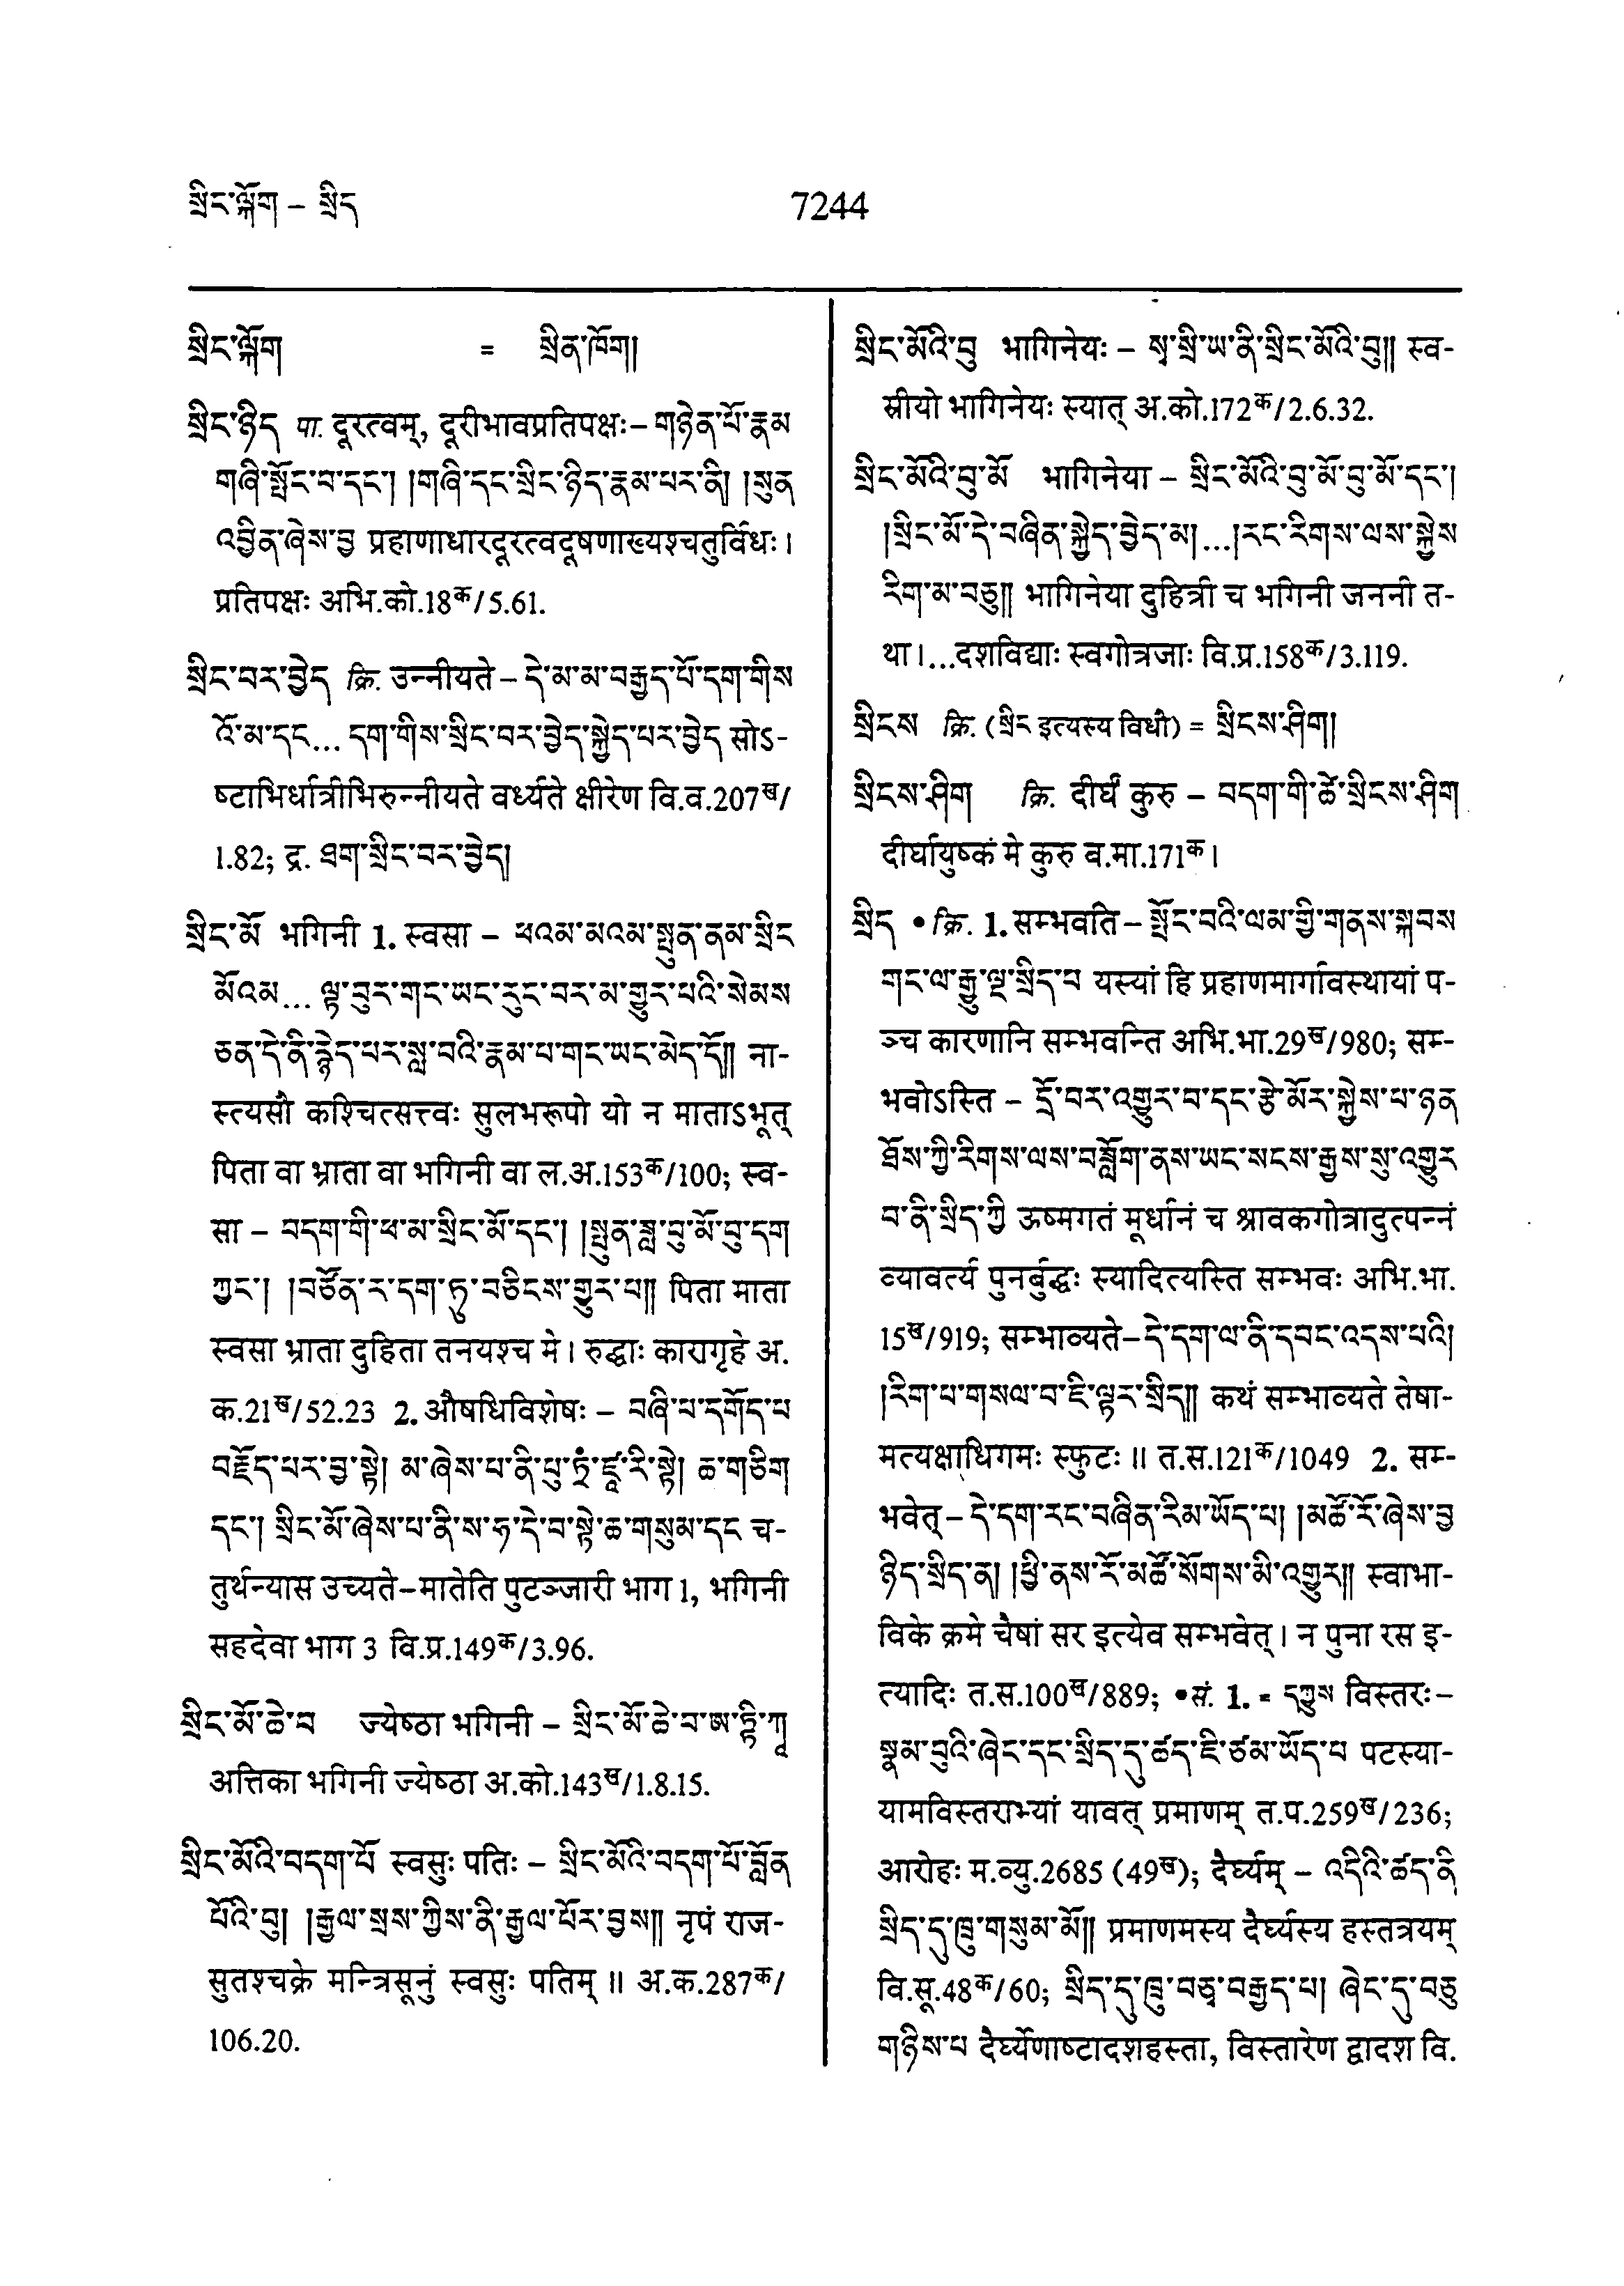 སྲིང་ལྐོག – སྲིད
7244
སྲིང་ལྐོག = སྲིན་ཁོག།
སྲིང་ཉིད पा. दूरत्वम्, दूरीभावप्रतिपक्षः– གཉེན་པོ་རྣམ
གཞི་སྤོང་བ་དང་། །གཞི་དང་སྲིང་ཉིད་རྣམ་པར་ནི། །སུན
འབྱིན་ཞེས་བྱ प्रहाणाधारदूरत्वदूषणाख्यश्चतुर्विधः।
प्रतिपक्षः अभि.को.18क/5.61.
སྲིང་བར་བྱེད क्रि. उन्नीयते – དེ་མ་མ་བརྒྱད་པོ་དག་གིས
འོ་མ་དང... དག་གིས་སྲིང་བར་བྱེད་སྐྱེད་པར་བྱེད सोऽ-
ष्टाभिर्धात्रीभिरुन्नीयते वर्ध्यते क्षीरेण वि.व.207ख/
1.82; द्र. ཐག་སྲིང་བར་བྱེད།
སྲིང་མོ भगिनी 1. स्वसा – ཕའམ་མའམ་སྤུན་ནམ་སྲིང
མོའམ... ལྟ་བུར་གང་ཡང་རུང་བར་མ་གྱུར་པའི་སེམས
ཅན་དེ་ནི་རྙེད་པར་སླ་བའི་རྣམ་པ་གང་ཡང་མེད་དོ།། ना-
स्त्यसौ कश्चित्सत्त्वः सुलभरूपो यो न माताऽभूत्
पिता वा भ्राता वा भगिनी वा ल.अ.153क/100; स्व-
सा – བདག་གི་ཕ་མ་སྲིང་མོ་དང་། །སྤུན་ཟླ་བུ་མོ་བུ་དག
ཀྱང་། །བཙོན་ར་དག་ཏུ་བཅིངས་གྱུར་པ།། पिता माता
स्वसा भ्राता दुहिता तनयश्च मे। रुद्धाः कारागृहे अ.
क.21ख/52.23 2. औषधिविशेषः – བཞི་པ་དགོད་པ
བརྗོད་པར་བྱ་སྟེ། མ་ཞེས་པ་ནི་པུ་ཏཾ་ཛཱ་རི་སྟེ། ཆ་གཅིག
དང་། སྲིང་མོ་ཞེས་པ་ནི་ས་ཧ་དེ་བ་སྟེ་ཆ་གསུམ་དང च-
तुर्थन्यास उच्यते–मातेति पुटञ्जारी भाग 1, भगिनी
सहदेवा भाग 3 वि.प्र.149क/3.96.
སྲིང་མོ་ཆེ་བ ज्येष्ठा भगिनी – སྲིང་མོ་ཆེ་བ་ཨ་ཏྟི་ཀཱ
अत्तिका भगिनी ज्येष्ठा अ.को.143ख/1.8.15.
སྲིང་མོའི་བདག་པོ स्वसुः पतिः – སྲིང་མོའི་བདག་པོ་བློན
པོའི་བུ། །རྒྱལ་སྲས་ཀྱིས་ནི་རྒྱལ་པོར་བྱས།། नृपं राज-
सुतश्चक्रे मन्त्रिसूनुं स्वसुः पतिम्॥ अ.क.287क/
106.20.
སྲིང་མོའི་བུ भागिनेयः – སྭ་སྲི་ཡ་ནི་སྲིང་མོའི་བུ།། स्व-
स्रीयो भागिनेयः स्यात् अ.को.172क/2.6.32.
སྲིང་མོའི་བུ་མོ भागिनेया – སྲིང་མོའི་བུ་མོ་བུ་མོ་དང་།
།སྲིང་མོ་དེ་བཞིན་སྐྱེད་བྱེད་མ།...།རང་རིགས་ལས་སྐྱེས
རིག་མ་བཅུ།། भागिनेया दुहित्री च भगिनी जननी त-
था।...दशविद्याः स्वगोत्रजाः वि.प्र.158क/3.119.
སྲིངས क्रि. (སྲིང इत्यस्य विधौ) = སྲིངས་ཤིག།
སྲིངས་ཤིག क्रि. दीर्घं कुरु – བདག་གི་ཚེ་སྲིངས་ཤིག
दीर्घायुष्कं मे कुरु व.मा.171क।
སྲིད • क्रि. 1. सम्भवति – སྤོང་བའི་ལམ་གྱི་གནས་སྐབས
གང་ལ་རྒྱུ་ལྔ་སྲིད་པ यस्यां हि प्रहाणमार्गावस्थायां प-
ञ्च कारणानि सम्भवन्ति अभि.भा.29ख/980; सम-
भवोऽस्ति – དྲོ་བར་འགྱུར་བ་དང་རྩེ་མོར་སྐྱེས་པ་ཉན
ཐོས་ཀྱི་རིགས་ལས་བཟློག་ནས་ཡང་སངས་རྒྱས་སུ་འགྱུར
བ་ནི་སྲིད་ཀྱི ऊष्मगतं मूर्धानं च श्रावकगोत्रादुत्पन्नं
व्यावर्त्य पुनर्बुद्धः स्यादित्यस्ति सम्भवः अभि.भा.
15ख/919; सम्भाव्यते–དེ་དག་ལ་ནི་དབང་འདས་པའི།
།རིག་པ་གསལ་བ་ཇི་ལྟར་སྲིད།། कथं सम्भाव्यते तेषा-
मत्यक्षाधिगमः स्फुटः॥ त.स.121क/1049 2. सम्-
भवेत् – དེ་དག་རང་བཞིན་རིམ་ཡོད་པ། །མཚོ་རོ་ཞེས་བྱ
ཉིད་སྲིད་ན། །ཕྱི་ནས་རོ་མཚོ་སོགས་མི་འགྱུར།། स्वाभा-
विके क्रमे चैषां सर इत्येव सम्भवेत्। न पुना रस इ-
त्यादिः त.स.100ख/889; •सं. 1. = དཀྱུས विस्तरः–
སྣམ་བུའི་ཞེང་དང་སྲིད་དུ་ཚད་ཇི་ཙམ་ཡོད་པ पटस्या-
यामविस्तराभ्यां यावत् प्रमाणम् त.प.259ख/236;
आरोहः म.व्यु.2685 (49ख); दैर्घ्यम् – འདིའི་ཚད་ནི
སྲིད་དུ་ཁྲུ་གསུམ་མོ།། प्रमाणमस्य दैर्घ्यस्य हस्तत्रयम्
वि.सू.48क/60; སྲིད་དུ་ཁྲུ་བཅྭ་བརྒྱད་པ། ཞེང་དུ་བཅུ
གཉིས་པ दैर्घ्येणाष्टादशहस्ता, विस्तारेण द्वादश वि.